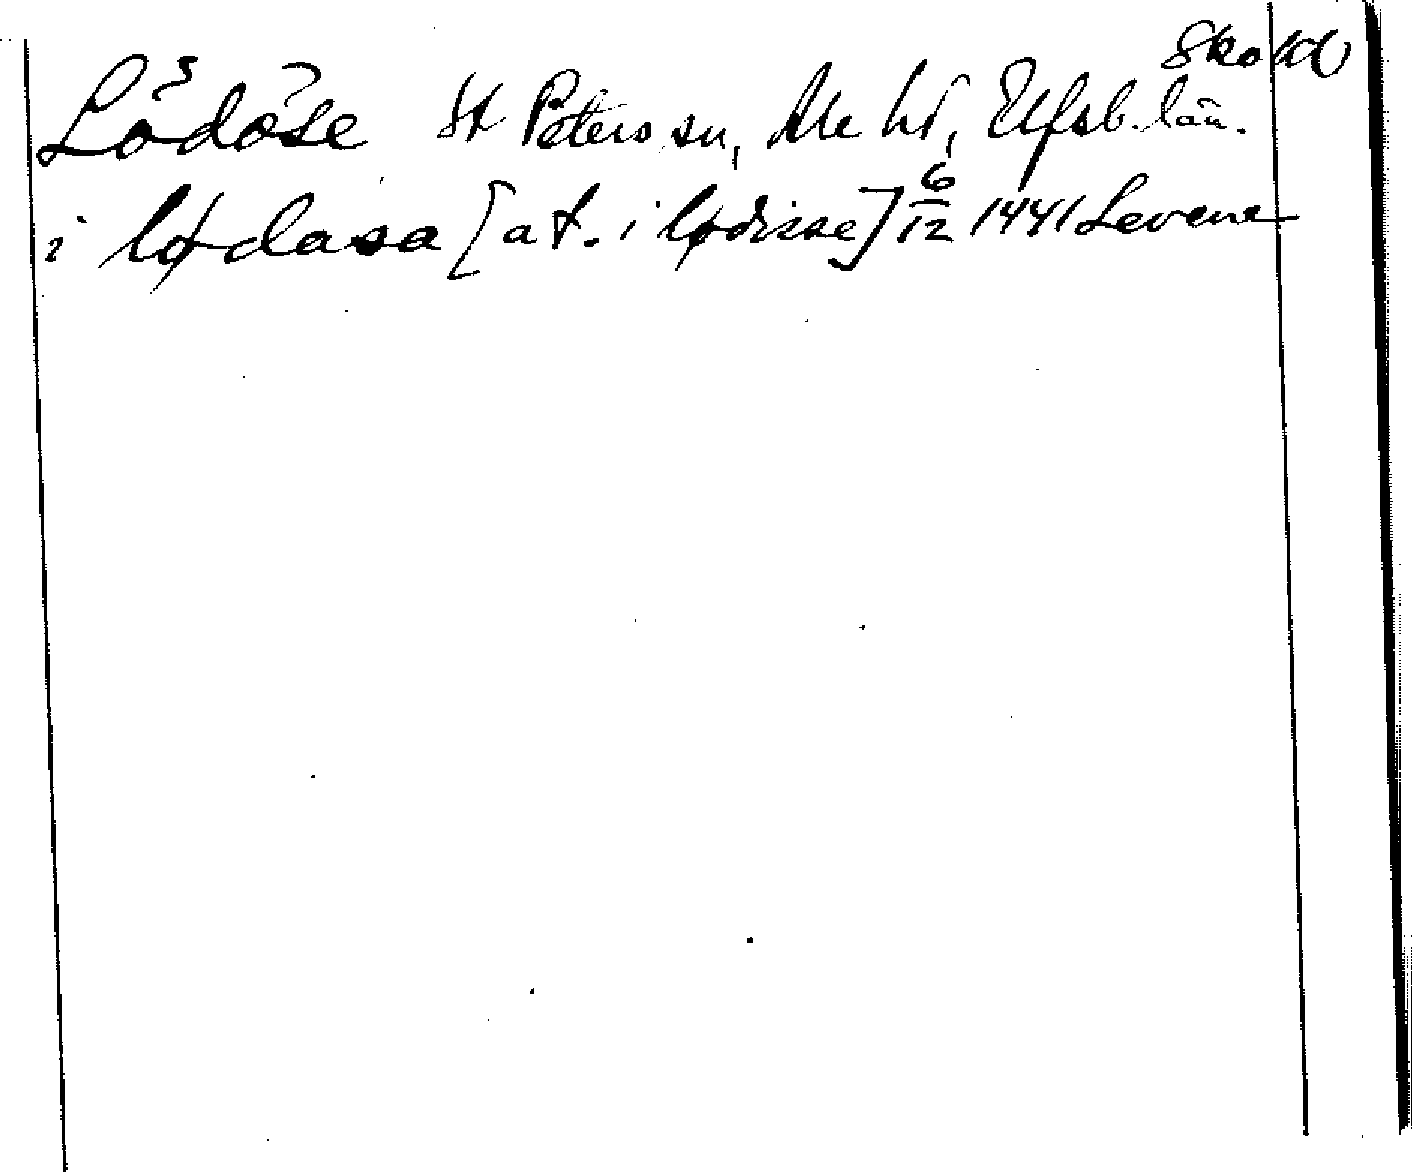 Lödöse St Peters sn, Ale hd, Elfsb. län.
i lødasa [at. i lødisse] 6/12 1441 Levene